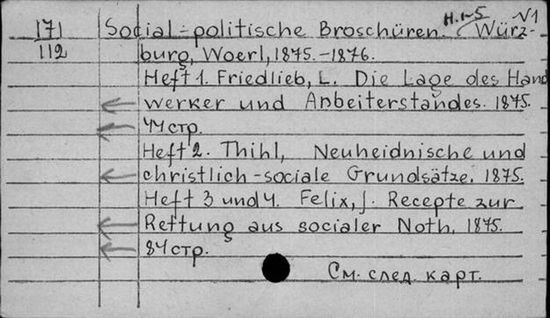 171
112
H.1-5
√1
Social-politische Broschüren. Würz-
burg, Woerl, 1875.-1876.
Heft 1. Friedlieb, L. Die Lage des Hand
werker und Arbeiterstandes. 1875.
44 стр.
Heft 2. Thihl, Neuheidnische und
christlich-sociale Grundsätze. 1875.
Heft 3 und 4. Felix, J. Recepte zur
Rettung aus socialer Noth. 1875.
84 стр.
См. след. карт.